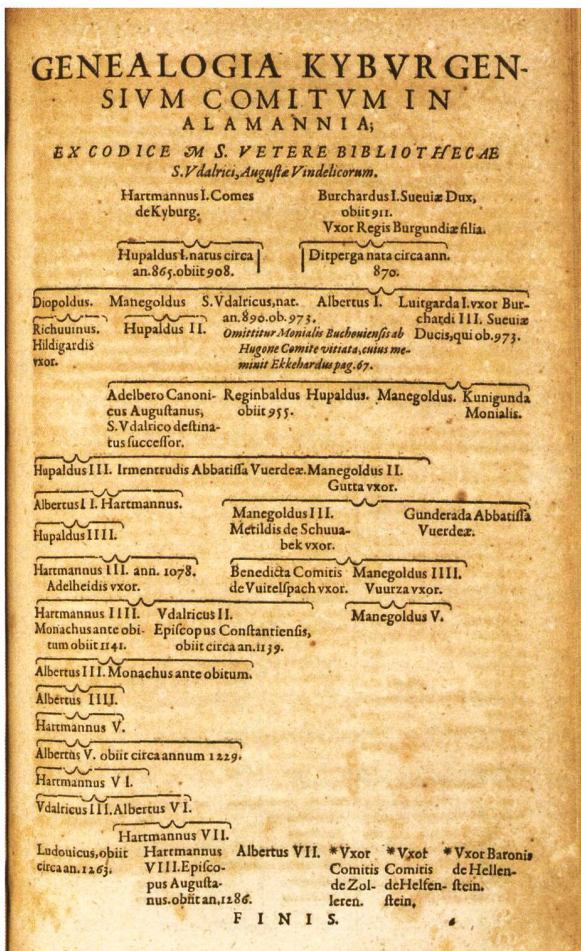 GENEALOGIA KYBVRGEN-
SIVM COMITVM IN
ALAMANNIA;
EX CODICE M S. VETERE BIBLIOTHECAE
S. Vdalrici, Augustæ Vindelicorum.
Hartmannus I. Comes
de Kyburg.
Burchardus I. Sueuiæ Dux,
obiit 911.
Vxor Regis Burgundiæ filia.
Hupaldus I. natus circa
an. 865. obiit 908.
Ditperga nata circa ann.
870.
Diopoldus. Manegoldus S. Vdalricus, nat. Albertus I. Luitgarda I. vxor Bur-
an. 890. ob. 973. chardi III. Sueuiæ
Ducis, qui ob. 973.
Richuuinus.
Hildigardis
vxor.
Hupaldus II.
Omittitur Monialis Buchouiensis ab
Hugone Comite vitiata, cuius me-
minit Ekkehardus pag. 67.
Adelbero Canoni-
cus Augustanus,
S. Vdalrico destina-
tus successor.
Reginbaldus
obiit 955.
Hupaldus. Manegoldus. Kunigunda
Monialis.
Hupaldus III. Irmentrudis Abbatissa Vuerdeæ. Manegoldus II.
Gutta vxor.
Albertus I I. Hartmannus.
Hupaldus IIII.
Manegoldus III.
Metildis de Schuua-
bek vxor.
Gunderada Abbatissa
Vuerdeæ.
Hartmannus III. ann. 1078.
Adelheidis vxor.
Benedicta Comitis
de Vuitelspach vxor.
Manegoldus IIII.
Vuurza vxor.
Hartmannus IIII.
Monachus ante obi-
tum obiit 1141.
Vdalricus II.
Episcopus Constantiensis,
obiit circa an. 1139.
Manegoldus V.
Albertus III. Monachus ante obitum.
Albertus IIII.
Hartmannus V.
Albertus V. obiit circa annum 1229.
Hartmannus V I.
Vdalricus III. Albertus V I.
Hartmannus VII.
Ludouicus, obiit
circa an. 1263.
Hartmannus
VIII. Episco-
pus Augusta-
nus. obiit an. 1286.
Albertus VII.
*Vxor
Comitis
de Zol-
leren.
*Vxor
Comitis
de Helfen-
stein,
*Vxor Baronis
de Hellen-
stein.
F I N I S.